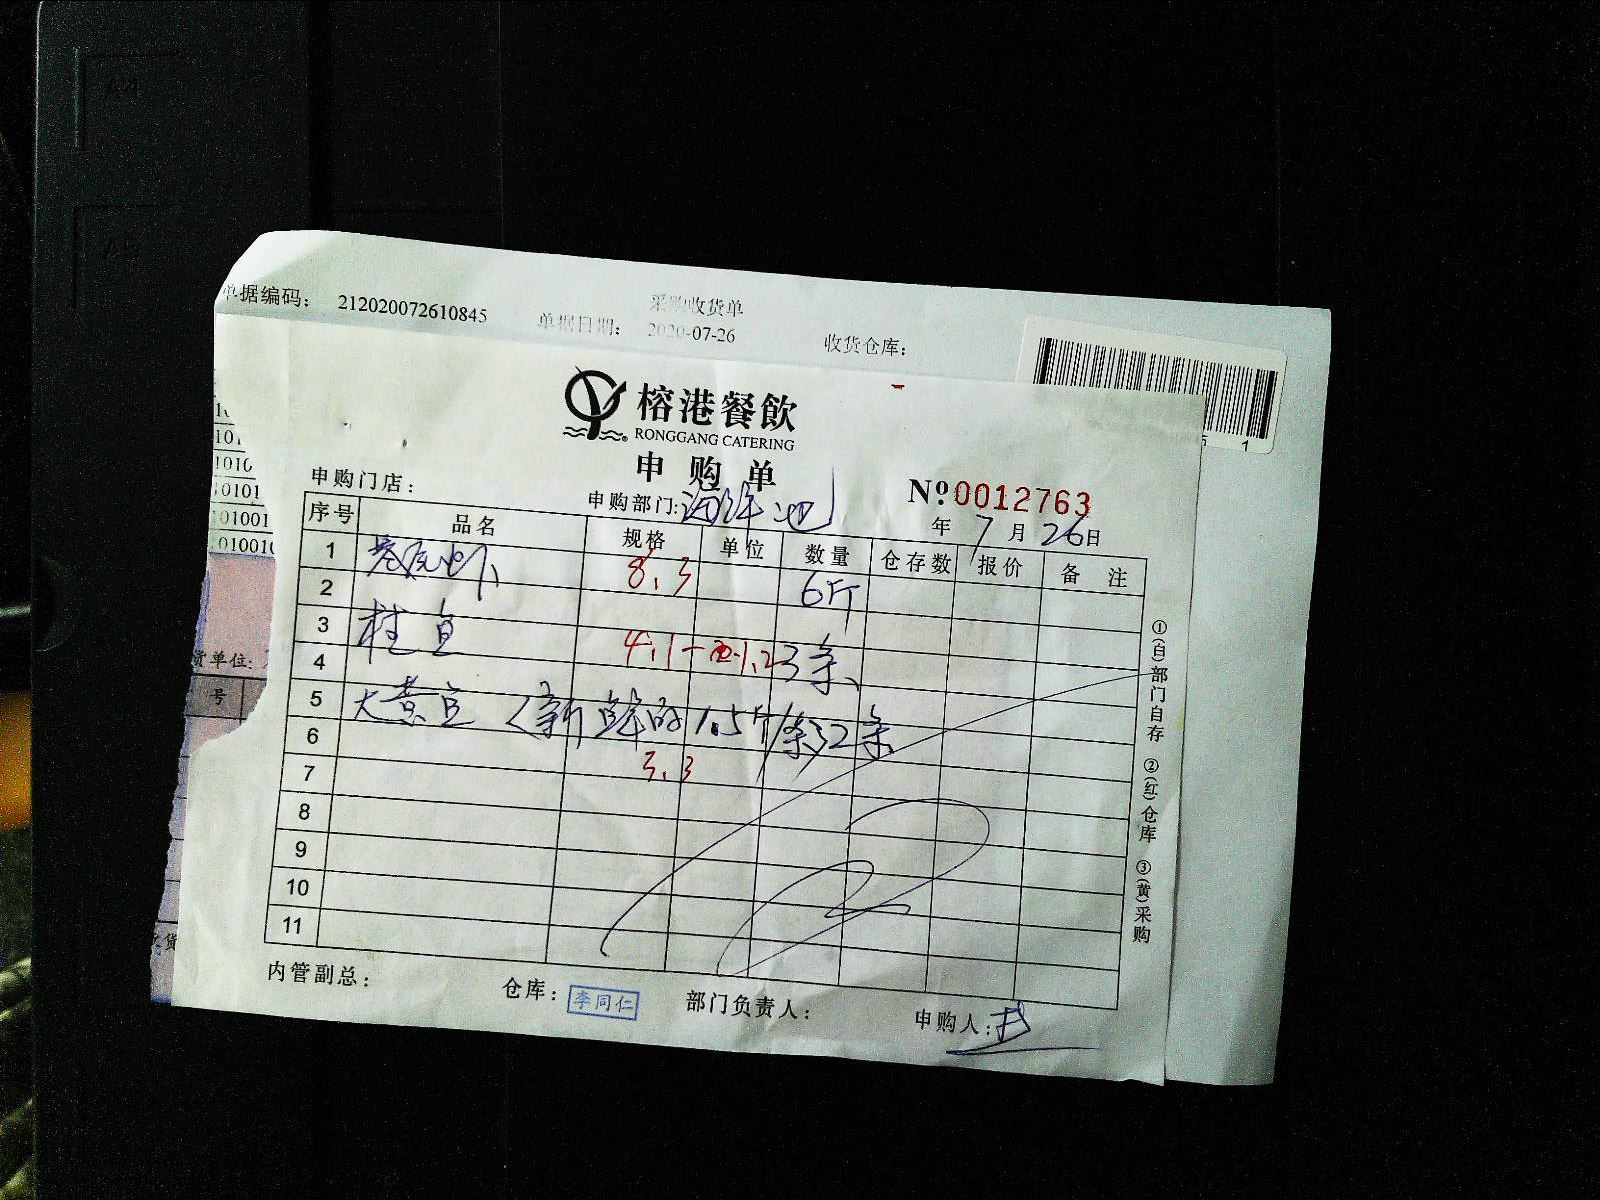 A4
A5
单据编码： 212020072610845
采购收货单
单据日期： 2020-07-26
收货仓库：
5 1
榕港餐飲
RONGGANG CATERING
申购单
申购门店：
申购部门：海鲜池
Nº 0012763
年 7 月 26 日
序号 品名 规格 单位 数量 仓存数 报价 备 注
1 基尾虾 8.3 6斤
2
3 桂鱼 4.1 - 1.2 3条
4
5 大黄鱼（新鲜的1.5斤/条）2条
6
7 3.3
8
9
10
11
①(白)部门自存 ②(红)仓库 ③(黄)采购
内管副总： 仓库： 李同仁 部门负责人： 申购人：
101
1010
10101
101001
1010010
货单位:
号